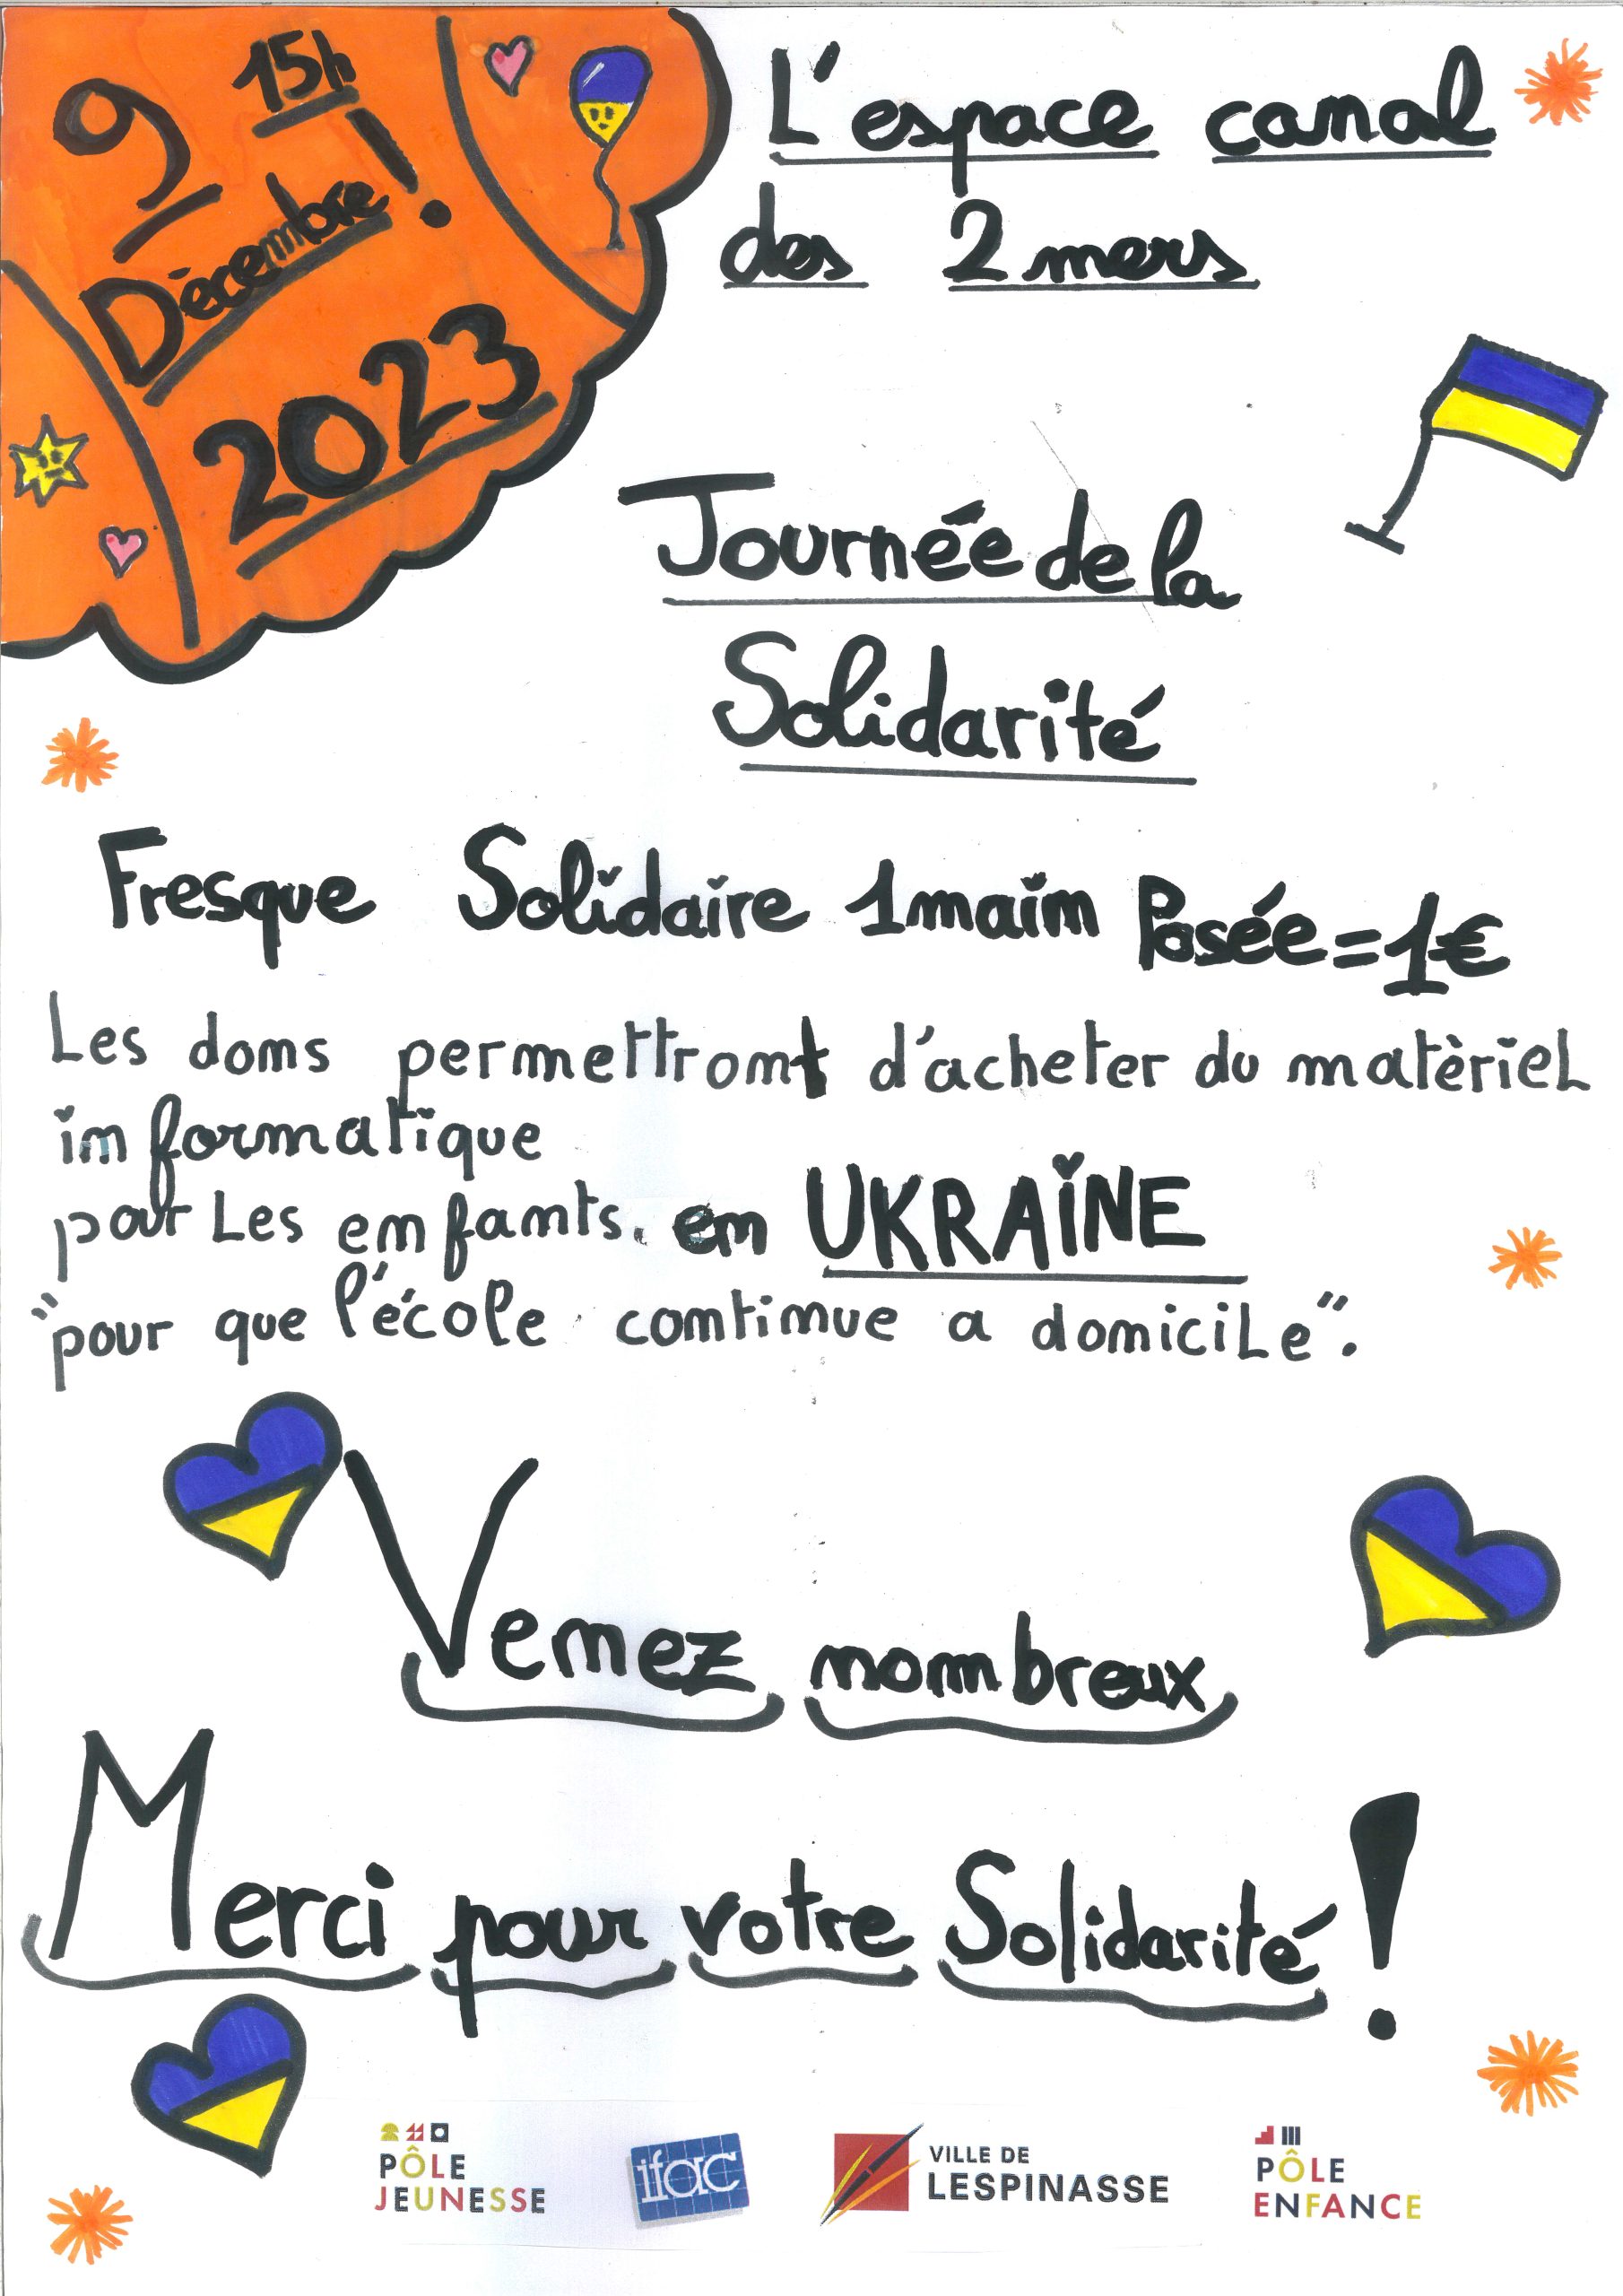 9
15h
Décembre !
2023
L'espace canal
des 2 mers
Journée de la
Solidarité
Fresque Solidaire 1 main Posée = 1€
Les dons permettront d'acheter du matèriel
informatique
par Les enfants. en UKRAINE
"pour que l'école continue a domiciLe".
Venez nombreux
Merci pour votre Solidarité !
PÔLE
JEUNESSE
ifac
VILLE DE
LESPINASSE
PÔLE
ENFANCE